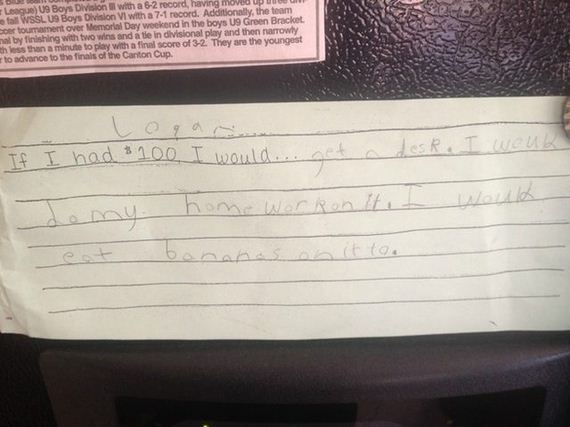 League) U9 Boys Division III with a 6-2 record, having moved up three divi-
fall WSSL U9 Boys Division VI with a 7-1 record. Additionally, the team
tournament over Memorial Day weekend in the boys U9 Green Bracket.
by finishing with two wins and a tie in divisional play and then narrowly
less than a minute to play with a final score of 3-2. They are the youngest
to advance to the finals of the Canton Cup.
Logan
If I had $100 I would... get a desk. I would
do my home work on it. I would
eat bananas on it to.